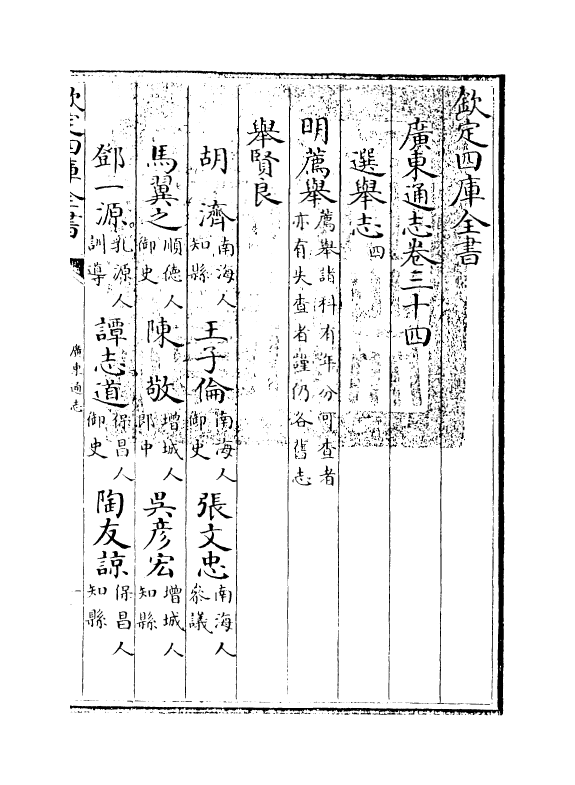 欽定四庫全書
廣東通志卷三十四
選舉志四
明薦舉薦舉諸科有年分可查者亦有失查者謹仍各舊志
舉賢良
胡濟南海人知縣 王子倫南海人御史 張文忠南海人叅議
馬翼之順德人御史 陳敬增城人郎中 吳彥宏增城人知縣
鄧一源乳源人訓導 譚志道保昌人御史 陶友諒保昌人知縣
欽定四庫全書 廣東通志 一